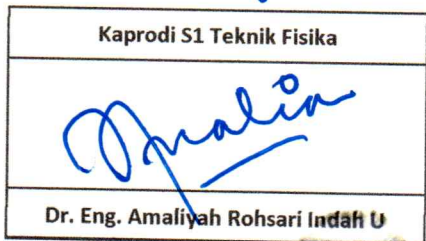 Kaprodi S1 Teknik Fisika
Amalia
Dr. Eng. Amaliyah Rohsari Indah U